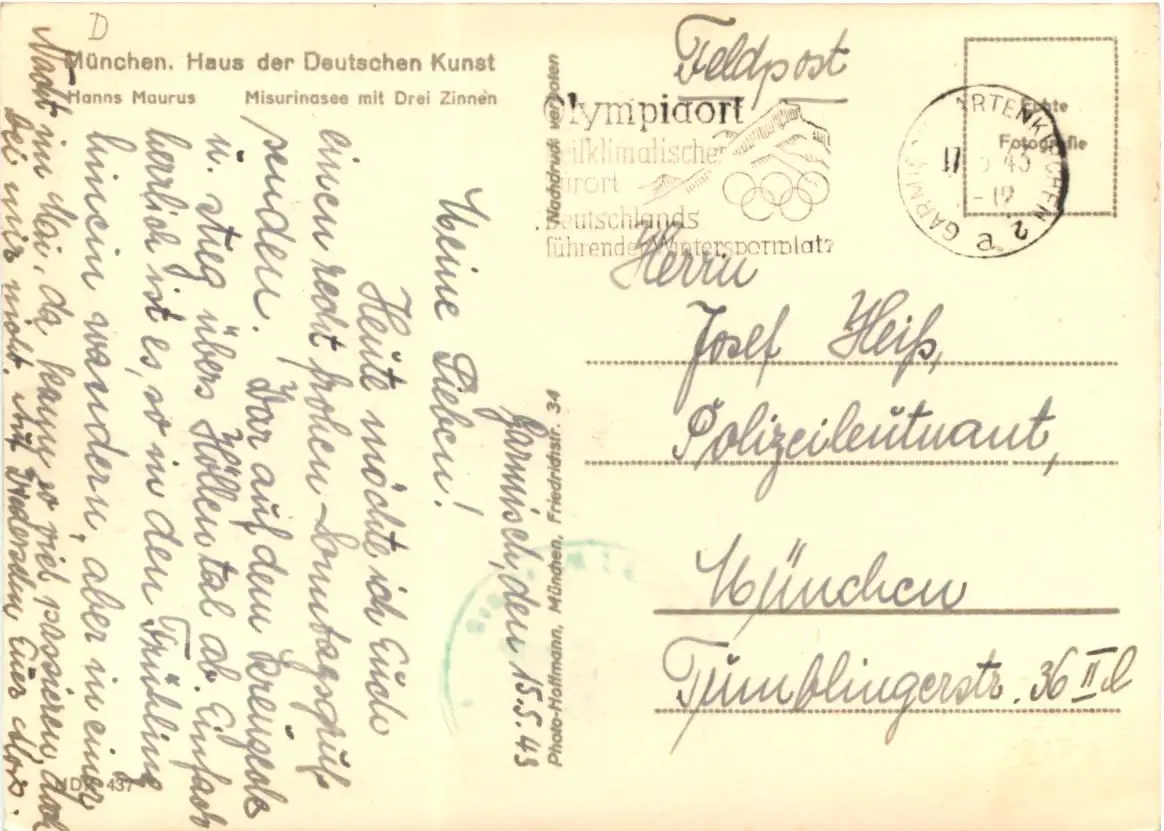 D
München. Haus der Deutschen Kunst
Hanns Maurus Misurinasee mit Drei Zinnen
Garmisch, den 15.5.43
Meine Lieben!
Heute möchte ich Euch
einen recht frohen Sonntagsgruß
senden. War auf dem Kreuzeck
u. stieg übers Höllental ab. Einfach
herrlich ist es, so in den Frühling
hinein wandern, aber in einer
Nacht im Mai, da kann so viel passieren, doch
bei mir nicht. Auf Wiedersehn Euer
HDK 437
Nachdruck verboten
Photo-Hoffmann, München, Friedrichstr. 34
Feldpost
Olympiaort
heilklimatischer
Kurort
Deutschlands
führender Wintersportplatz
GARMISCH-PARTENKIRCHEN 2
a
Echte
Fotografie
Herrn
Josef Heiß,
Polizeileutnant,
München
Tumblingerstr. 36 II l